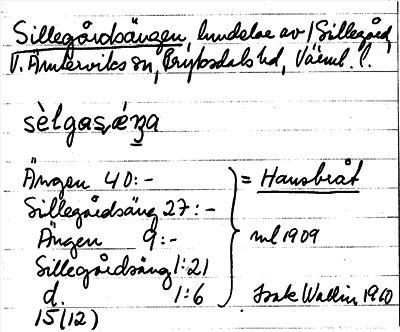 Sillegårdsängen, hundelae av / Sillegård,
V. Ämterviks sn, Fryksdals hd, Värml. l.
sèlgas,éŋa
Ängen 40:-
Sillegårdsäng 27:-
Ängen 9:-
Sillegårdsäng 1:21
d. 1:6
15(12)
= Hansbråt
ml 1909
Isak Wallin 1960